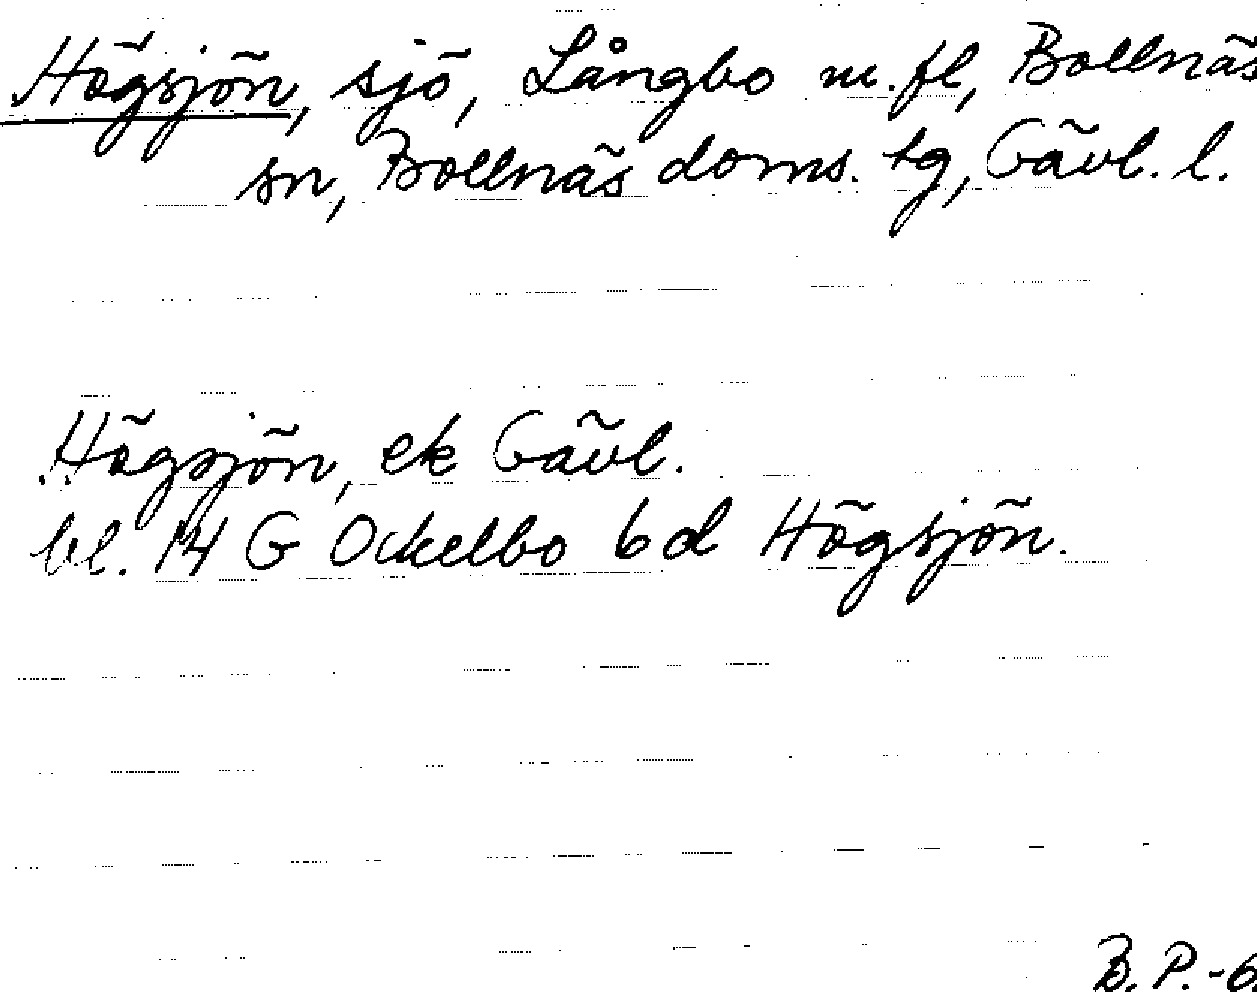 Högsjön, sjö, Långbo m.fl, Bollnäs
sn, Bollnäs doms. tg, Gävl. l.
Högsjön, ek Gävl.
bl. 14 G Ockelbo 6d Högsjön.
B.P.-6